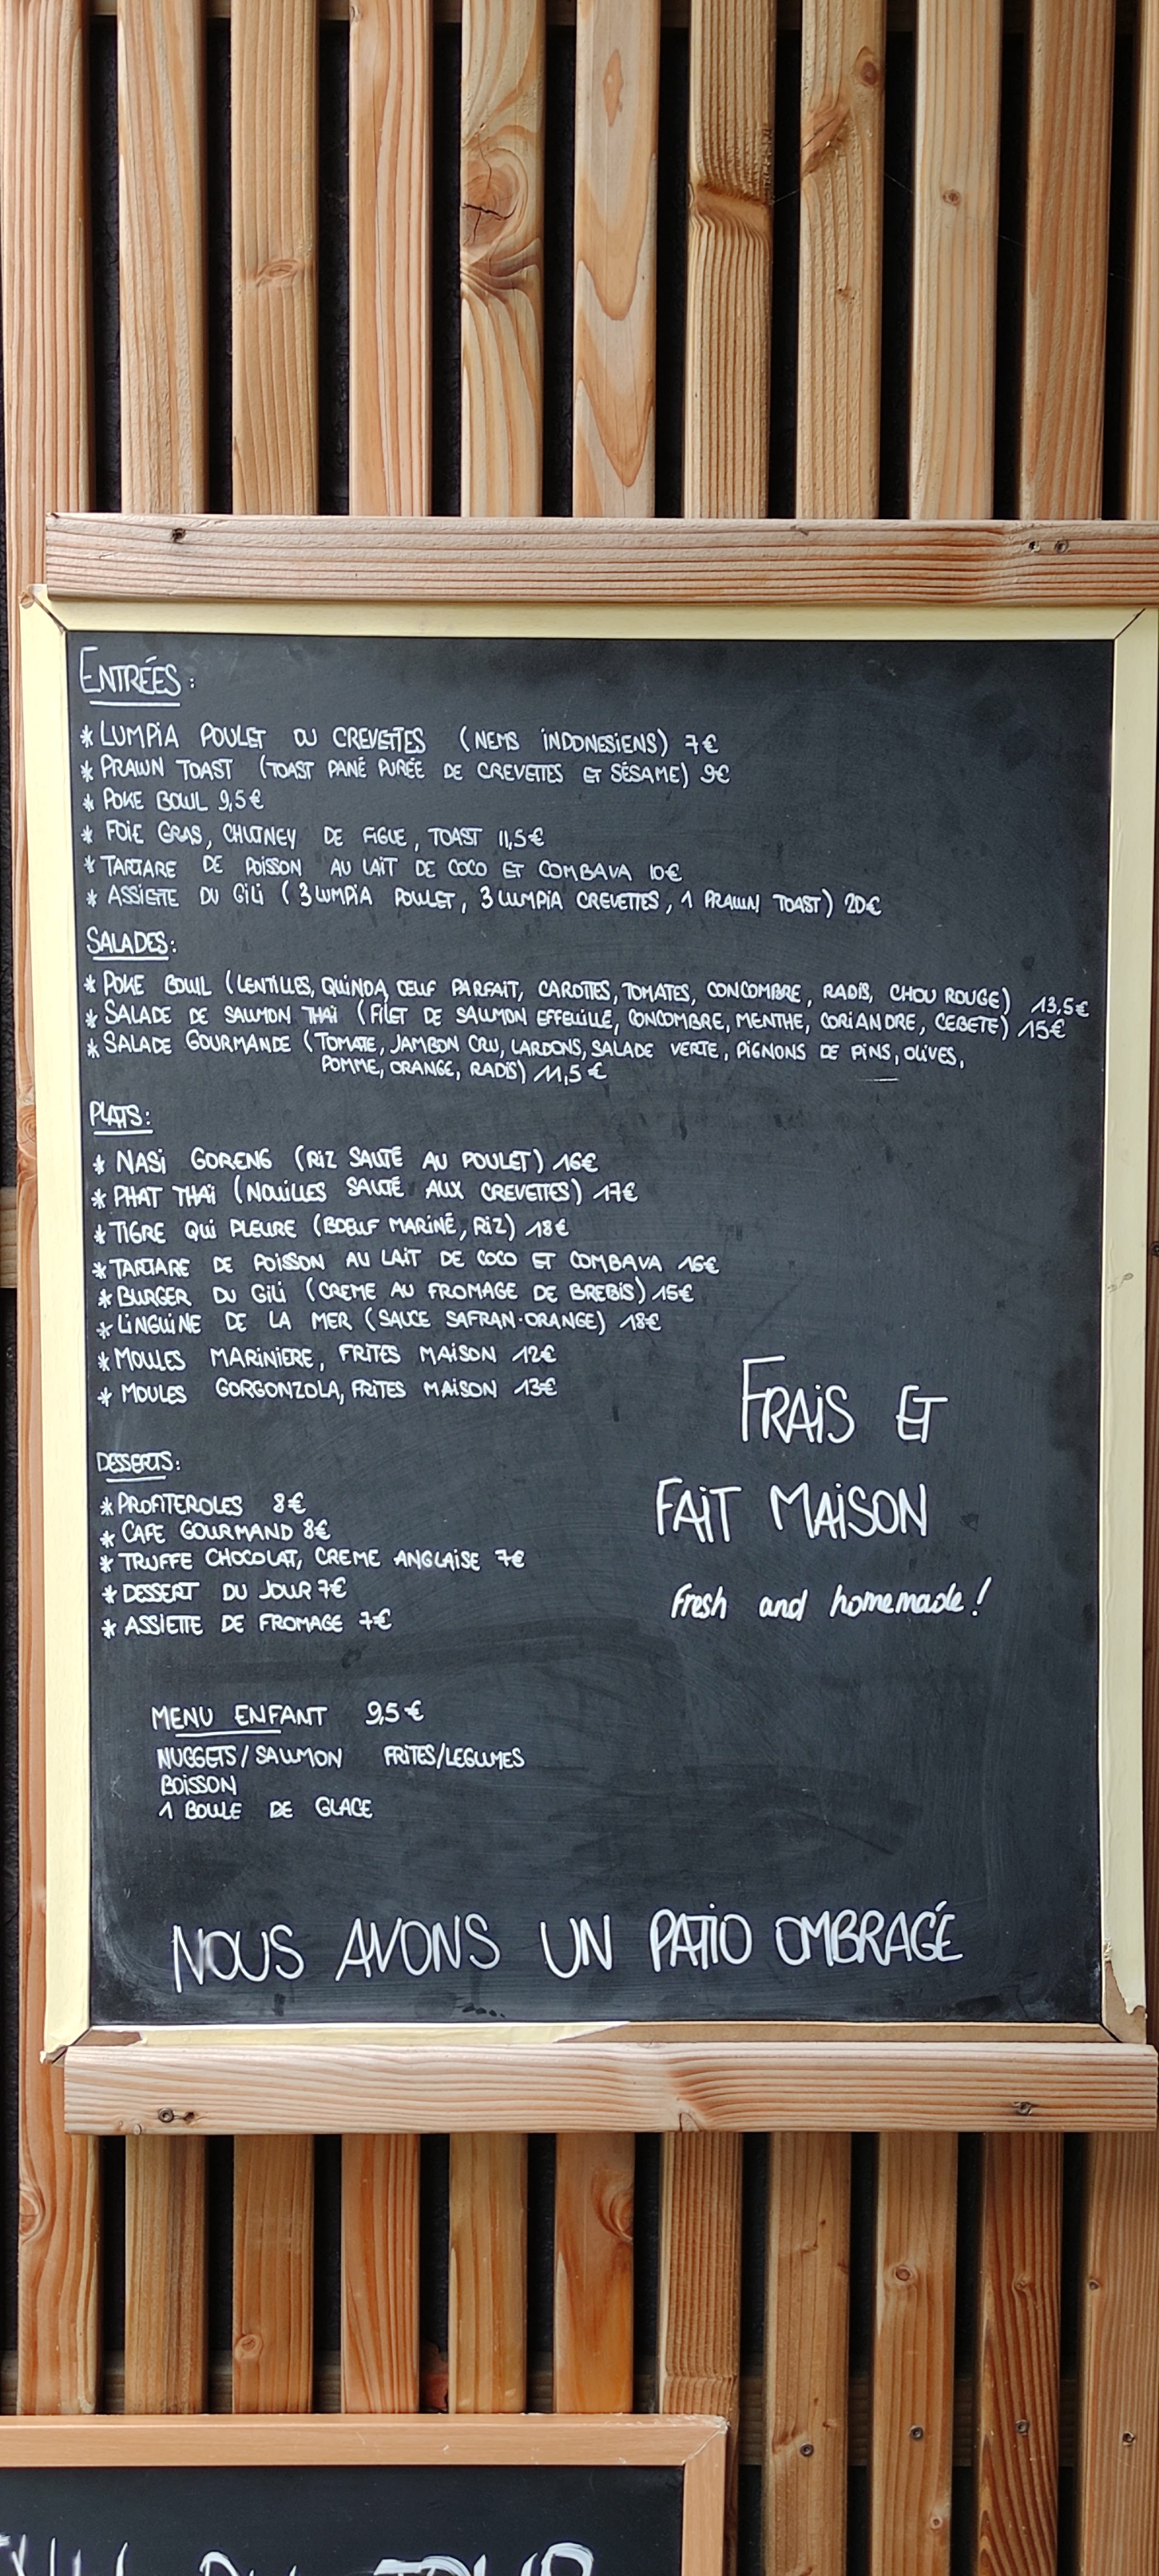 ENTRÉES :
* LUMPiA POULET OU CREVETTES (NEMS iNDONESiENS) 7€
* PRAWN TOAST (TOAST PANÉ PURÉE DE CREVETTES ET SÉSAME) 9€
* POKE BOWL 9,5€
* FOiE GRAS, CHUTNEY DE FIGUE, TOAST 11,5€
* TARTARE DE POiSSON AU LAiT DE COCO ET COMBAVA 10€
* ASSIETTE DU GiLi (3 LUMPiA POULET, 3 LUMPiA CREVETTES, 1 PRAWN TOAST) 20€
SALADES :
* POKE BOWL (LENTiLLES, QUiNOA, OEUF PARFAiT, CAROTTES, TOMATES, CONCOMBRE, RADiS, CHOU ROUGE) 13,5€
* SALADE DE SAUMON THAi (FiLET DE SAUMON EFFEUiLLÉ, CONCOMBRE, MENTHE, CORiANDRE, CEBETE) 15€
* SALADE GOURMANDE (TOMATE, JAMBON CRU, LARDONS, SALADE VERTE, PiGNONS DE PiNS, OLiVES,
POMME, ORANGE, RADiS) 11,5€
PLATS :
* NASi GORENG (RiZ SAUTÉ AU POULET) 16€
* PHAT THAï (NOUiLLES SAUTÉ AUX CREVETTES) 17€
* TIGRE QUi PLEURE (BOEUF MARiNÉ, RiZ) 18€
* TARTARE DE POiSSON AU LAiT DE COCO ET COMBAVA 16€
* BURGER DU GiLi (CREME AU FROMAGE DE BREBiS) 15€
* LiNGUiNE DE LA MER (SAUCE SAFRAN-ORANGE) 18€
* MOULES MARiNiERE, FRiTES MAiSON 12€
* MOULES GORGONZOLA, FRiTES MAiSON 13€
FRAiS ET
FAiT MAiSON
Fresh and homemade !
DESSERTS :
* PROFiTEROLES 8€
* CAFE GOURMAND 8€
* TRUFFE CHOCOLAT, CREME ANGLAISE 7€
* DESSERT DU JOUR 7€
* ASSiETTE DE FROMAGE 7€
MENU ENFANT 9,5€
NUGGETS/SAUMON FRiTES/LEGUMES
BOiSSON
1 BOULE DE GLACE
NOUS AVONS UN PATiO OMBRAGÉ